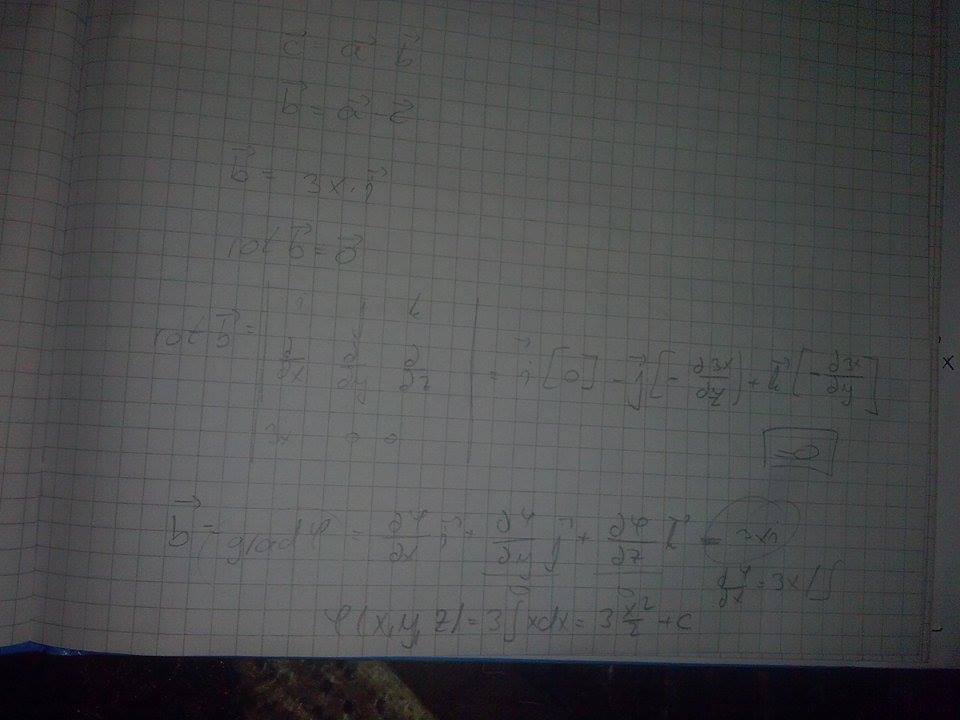 c⃗ = a⃗ b⃗
b⃗ = a⃗ - c⃗
b⃗ = 3x · i⃗
rot b⃗ = 0⃗
rot b⃗ = | i j k | ∂/∂x ∂/∂y ∂/∂z | 3x 0 0 | = i⃗ [0] - j⃗ [- ∂3x/∂z] + k⃗ [- ∂3x/∂y]
= 0
b⃗ = grad φ = ∂φ/∂x i⃗ + ∂φ/∂y j⃗ + ∂φ/∂z k⃗ = 3xi
0 0 ∂φ/∂x = 3x /∫
φ(x,y,z) = 3∫xdx = 3 x²/2 + c
x